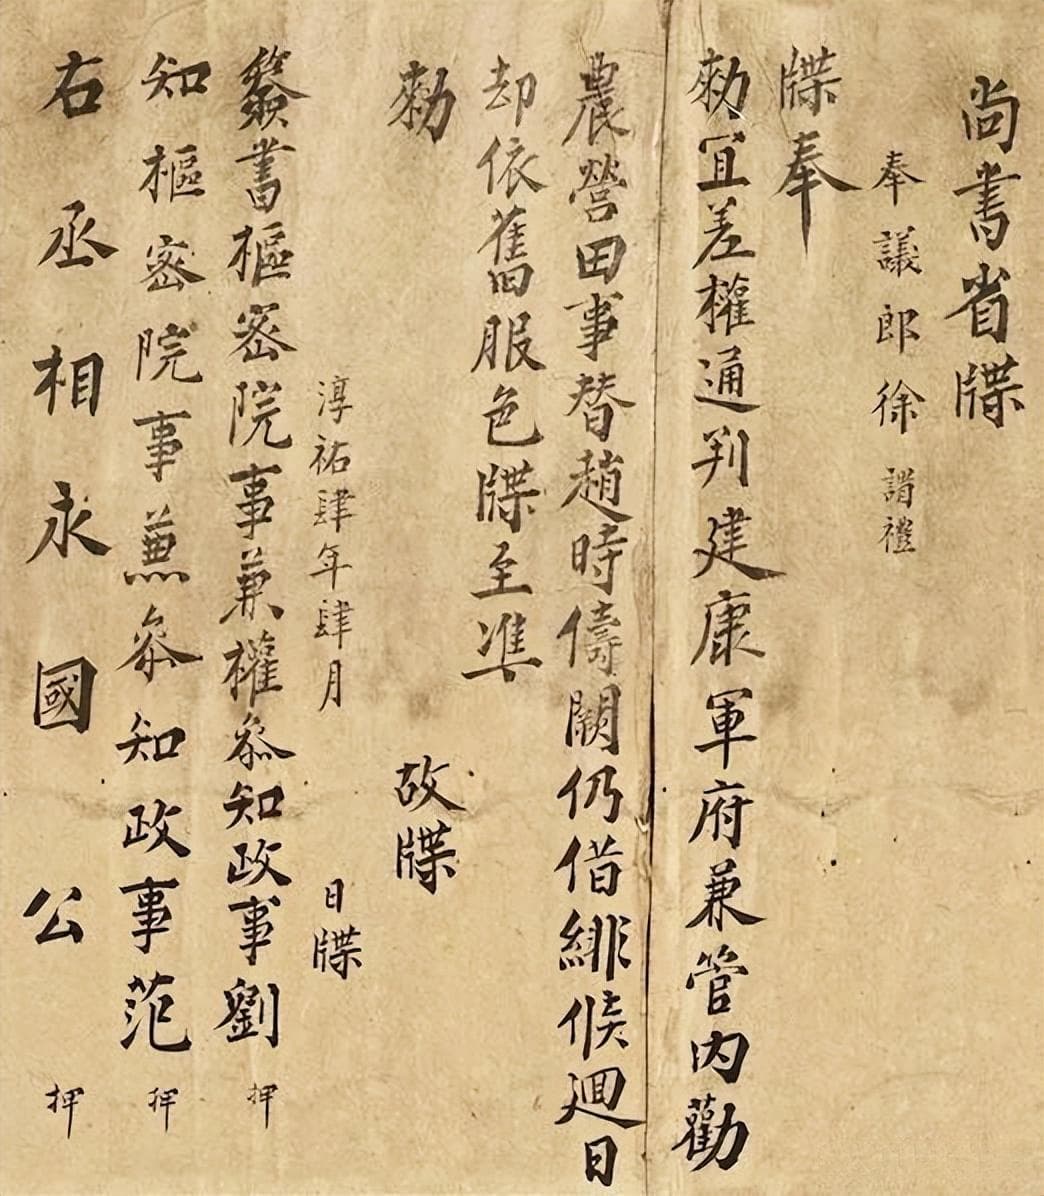 尚書省牒
奉議郎徐謂禮
牒奉
勑宜差權通判建康軍府兼管內勸
農營田事替趙時儔闕仍借緋候迴日
却依舊服色牒至準
勑 故牒
淳祐肆年肆月 日牒
簽書樞密院事兼權叅知政事劉 押
知樞密院事兼叅知政事范 押
右丞相永國公 押